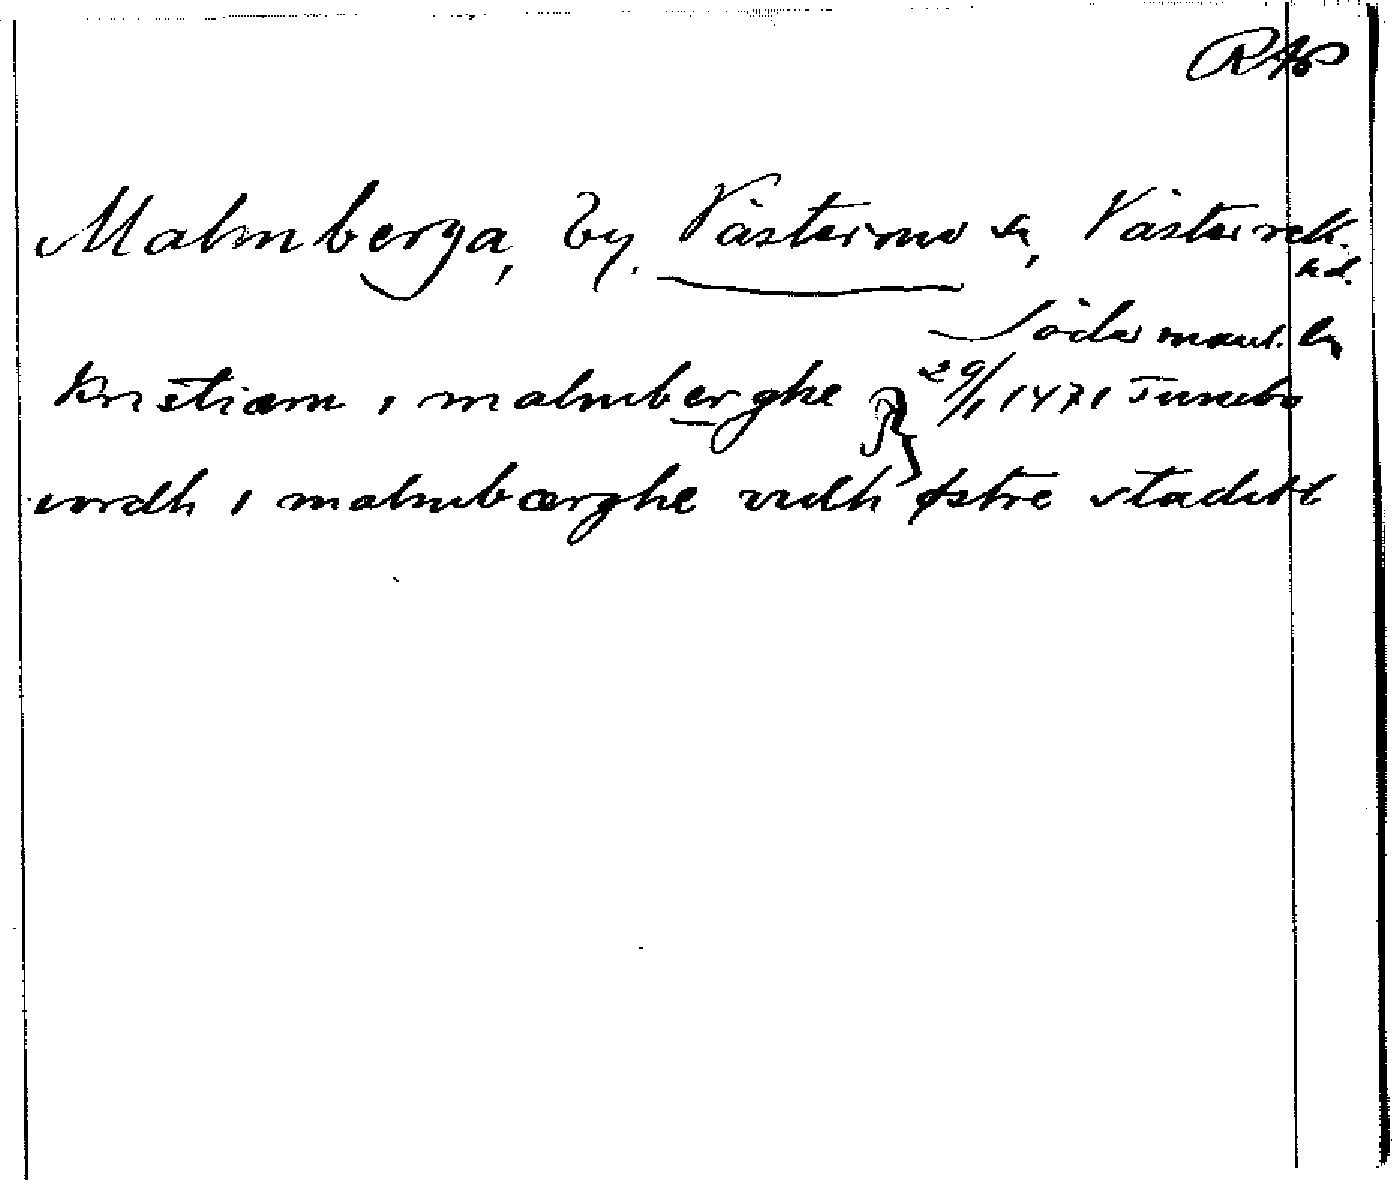 RAp
Malmberga, by, Västermo sn, Västerrek.
hd.
Söderman. ln
kristiærn i malmberghe 29/1 1471 Tunebo
iordh i malmbærghe widh østre stadith